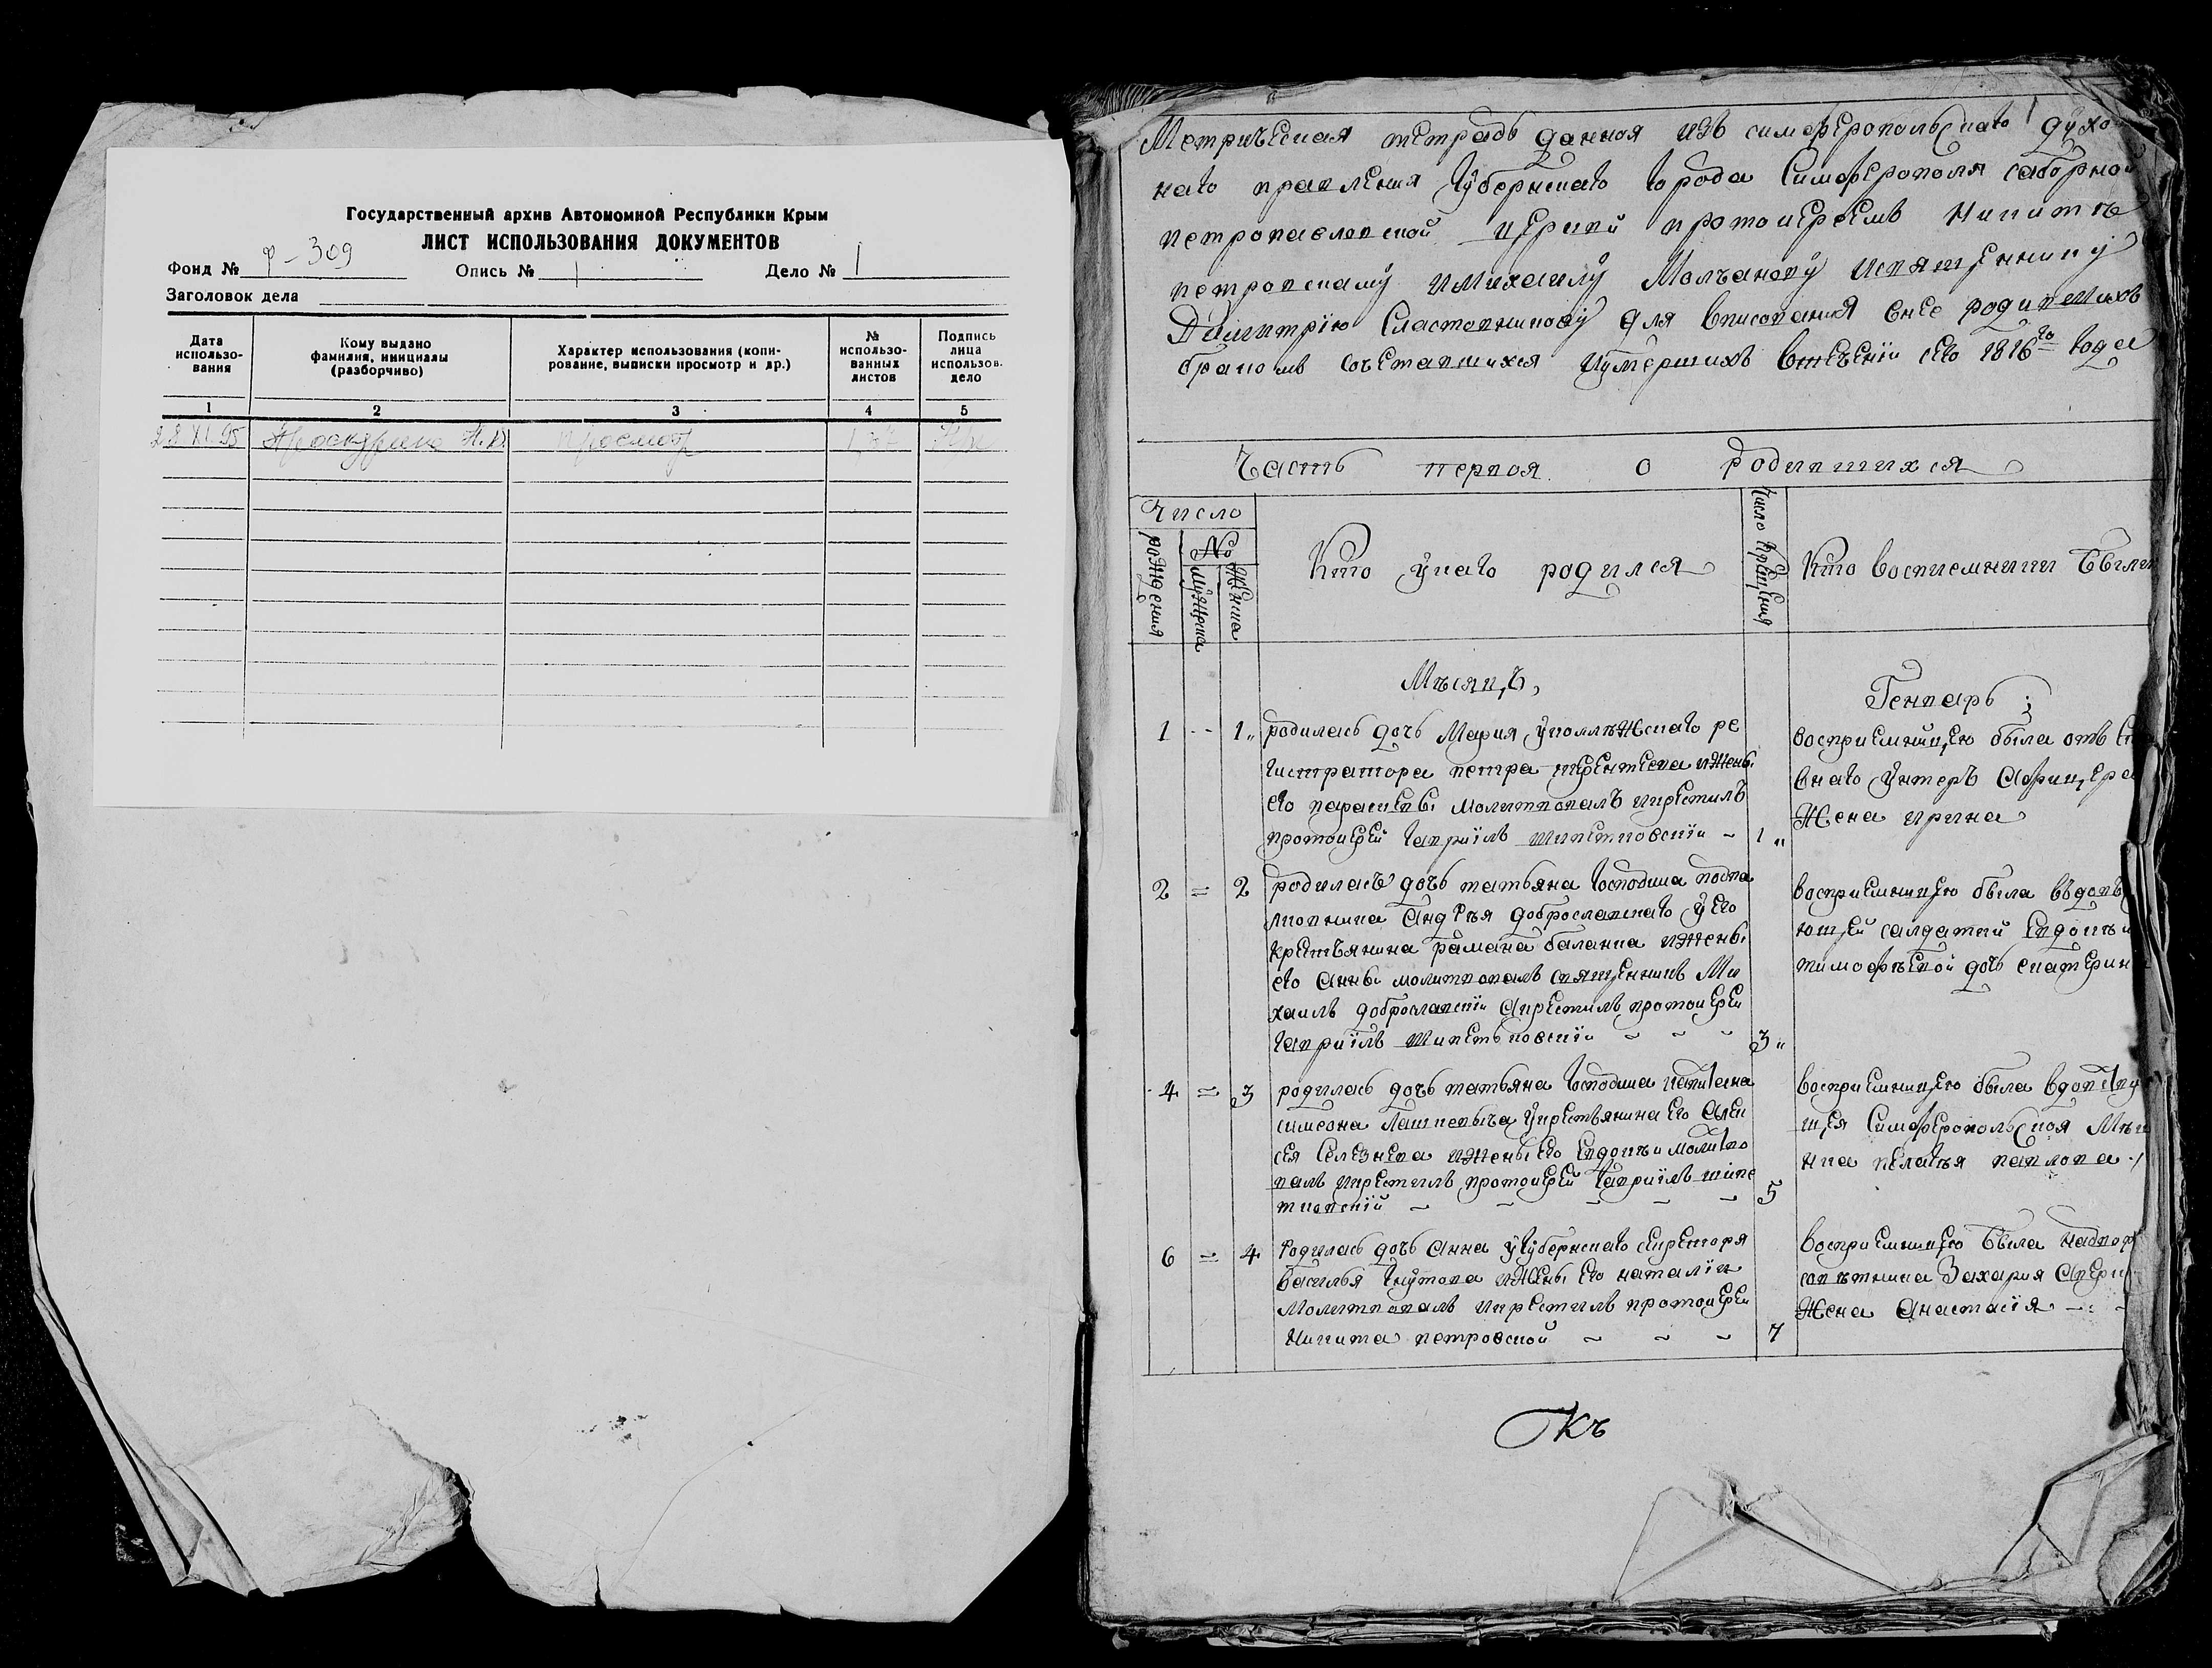 Государственный архив Автономной Республики Крым
ЛИСТ ИСПОЛЬЗОВАНИЯ ДОКУМЕНТОВ
Фонд № Р-309 Опись № 1 Дело № 1
Заголовок дела
Дата использо-вания
Кому выдано фамилия, инициалы (разборчиво)
Характер использования (копи-рование, выписки просмотр и др.)
№ использо-ванных листов
Подпись лица использов. дело
1 2 3 4 5
28 XI 95 просмотр
Метрическая тетрадь данная изъ симферопольскаго духов
наго правления губернскаго города Симферополя саборной
петропавловской церкви протоиереемъ Никитѣ
петровскому и Михаилу Молчанову и священнику
Дмитрїю Сластовникову для вписования внее родившихъ
бракомъ сочетавшихся и умершихъ втечении сего 1816го года
Часть первоя о родившихся
Число
рождения
No
мужска
женска
Кто укаго родился
Число крещения
Кто восприемники были
Мѣсяцъ,
Генварь;
1 -- 1„ родилась дочь Мария уколлѣжскаго ре
гистратора петра терентьева ижены
его параскевы молитвовалъ икрестилъ
протоиерей гавриїлъ шипетковскїи ~ 1„
восприемницею была отъ
внаго унтеръ Афицера
Жена ирина
2 = 2 родилась дочь татьяна господина полко
вника Андрѣя доброславскаго у его
крестьянина рамана баланка ижены
его Анны молитвовалъ священникъ Ми
хаилъ доброславскїи Акрестилъ протоиереи
гавриїлъ шипетьковскїи ~ ~ ~ 3„
восприемницею была въдовъ
ющей салдатки Евдокъи
тимофѣевой дочь екатерин
4 = 3 родилась дочь татьяна господина капитана
симеона Лашкевыча укрестьянина его Алек
сея Селезнева ижены его Евдокъи молитво
валъ икрестилъ протоиерей гавриїлъ шипе
тковскїй ~ ~ ~ ~ 5
восприемницею была вдовству
щея Симферопольской Мъщ
нка пелагѣя павлова
6 = 4 Родилась дочь Анна угубернскаго секреторя
василья Кнутова ижены его наталїи
Молитвовалъ икрестилъ протоиереи
Никита петровской ~ ~ ~ 7
восприемницею была надвор
совѣтника Захария
Жена Анастасїя
Къ